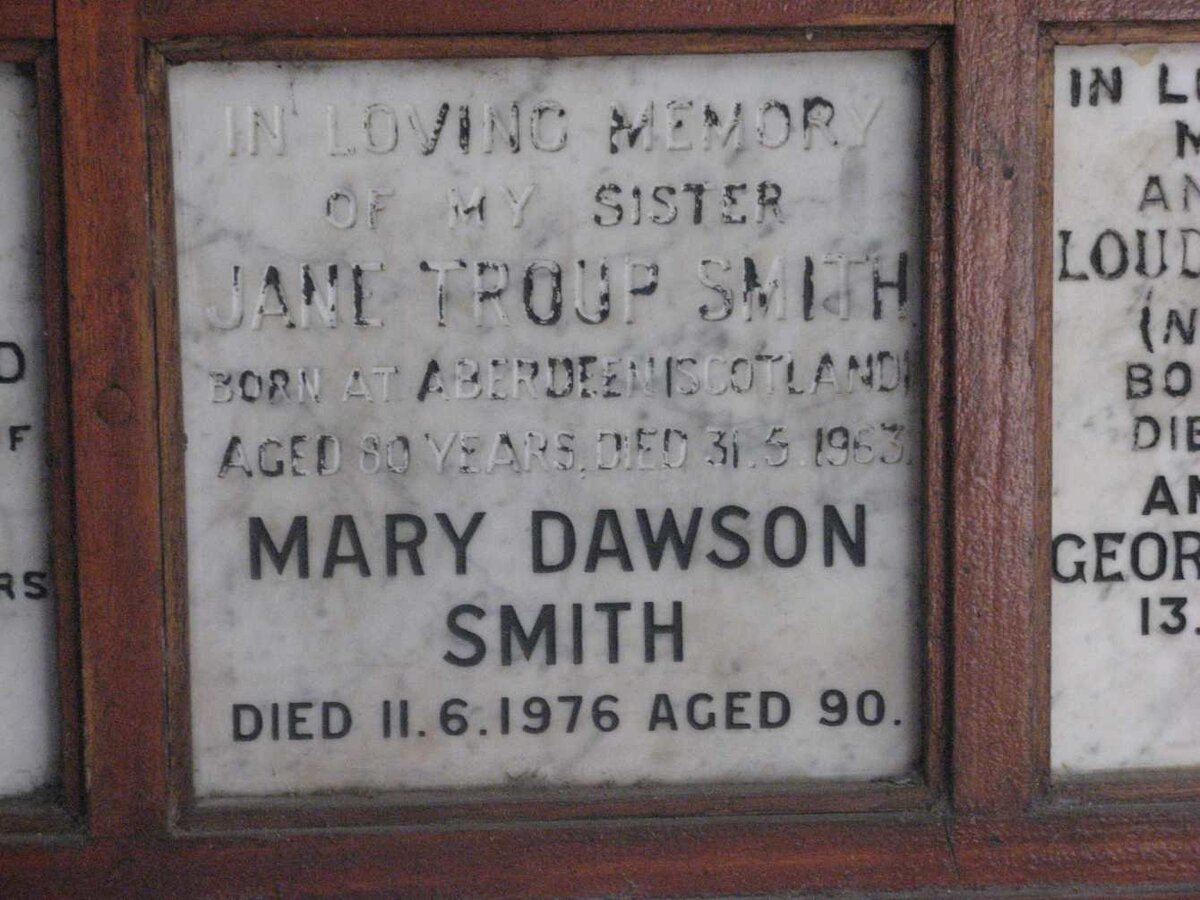 IN LOVING MEMORY
OF MY SISTER
JANE TROUP SMITH
BORN AT ABERDEEN (SCOTLAND)
AGED 80 YEARS, DIED 31.5.1963.
MARY DAWSON
SMITH
DIED 11.6.1976 AGED 90.
D
F
RS
IN LO
M
AN
LOUD
(N
BO
DIE
AN
GEOR
13.